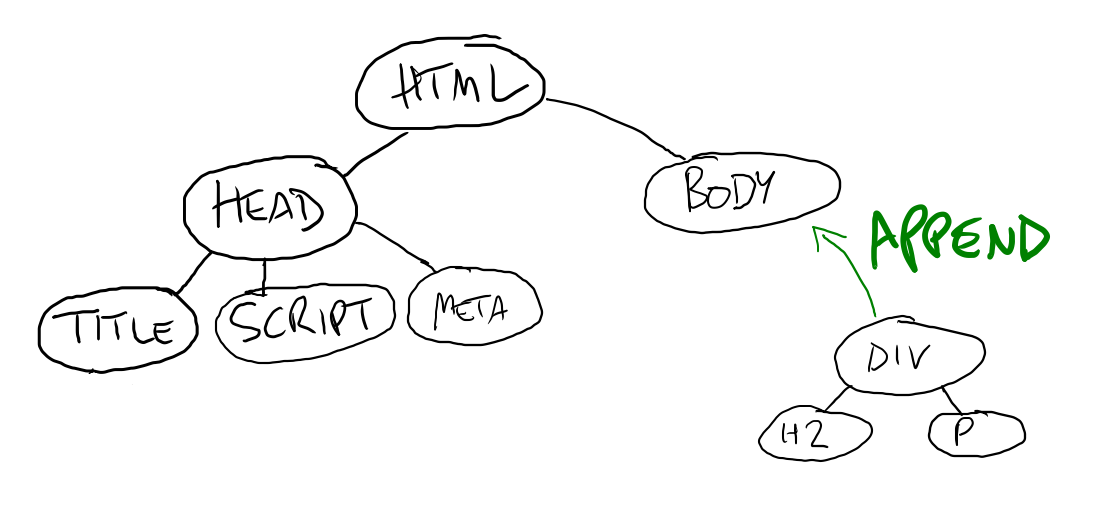 HTML
HEAD
BODY
APPEND
TITLE
SCRIPT
META
DIV
H2
P